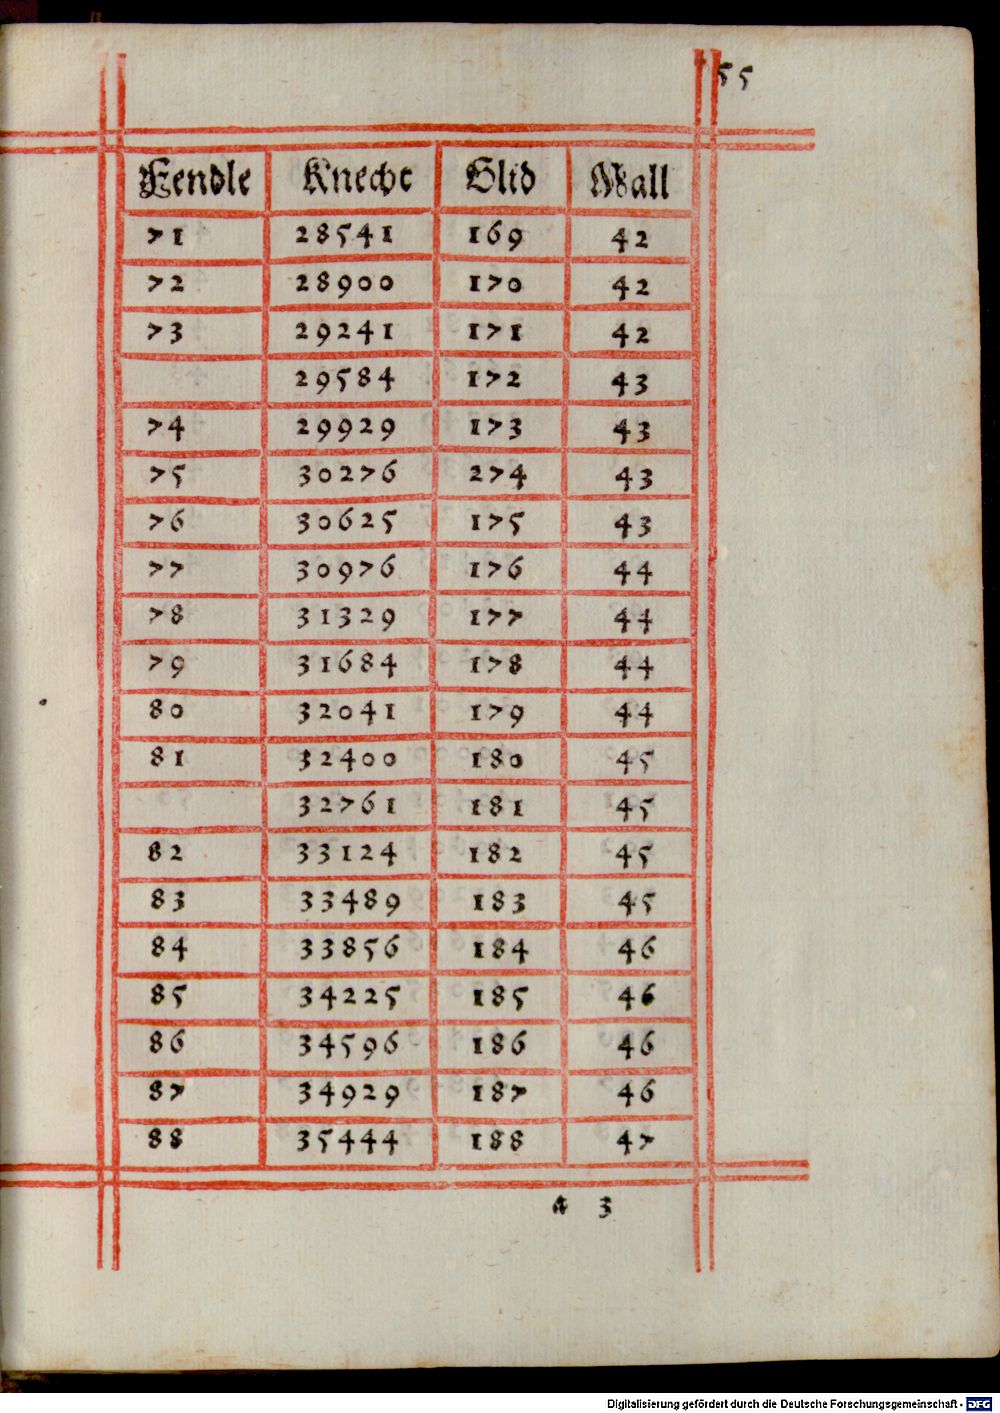 55
Fendle Knecht Glid Wall
71 28541 169 42
72 28900 170 42
73 29241 171 42
29584 172 43
74 29929 173 43
75 30276 274 43
76 30625 175 43
77 30976 176 44
78 31329 177 44
79 31684 178 44
80 32041 179 44
81 32400 180 45
32761 181 45
82 33124 182 45
83 33489 183 45
84 33856 184 46
85 34225 185 46
86 34596 186 46
87 34929 187 46
88 35444 188 47
a 3
Digitalisierung gefördert durch die Deutsche Forschungsgemeinschaft - DFG